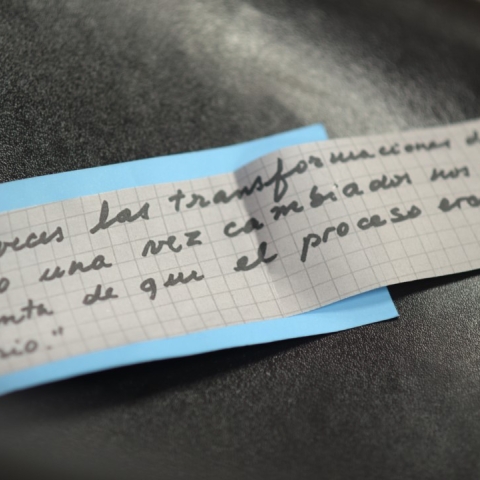 veces las transformaciones d
o una vez cambiados nos
nta de que el proceso era
rio."